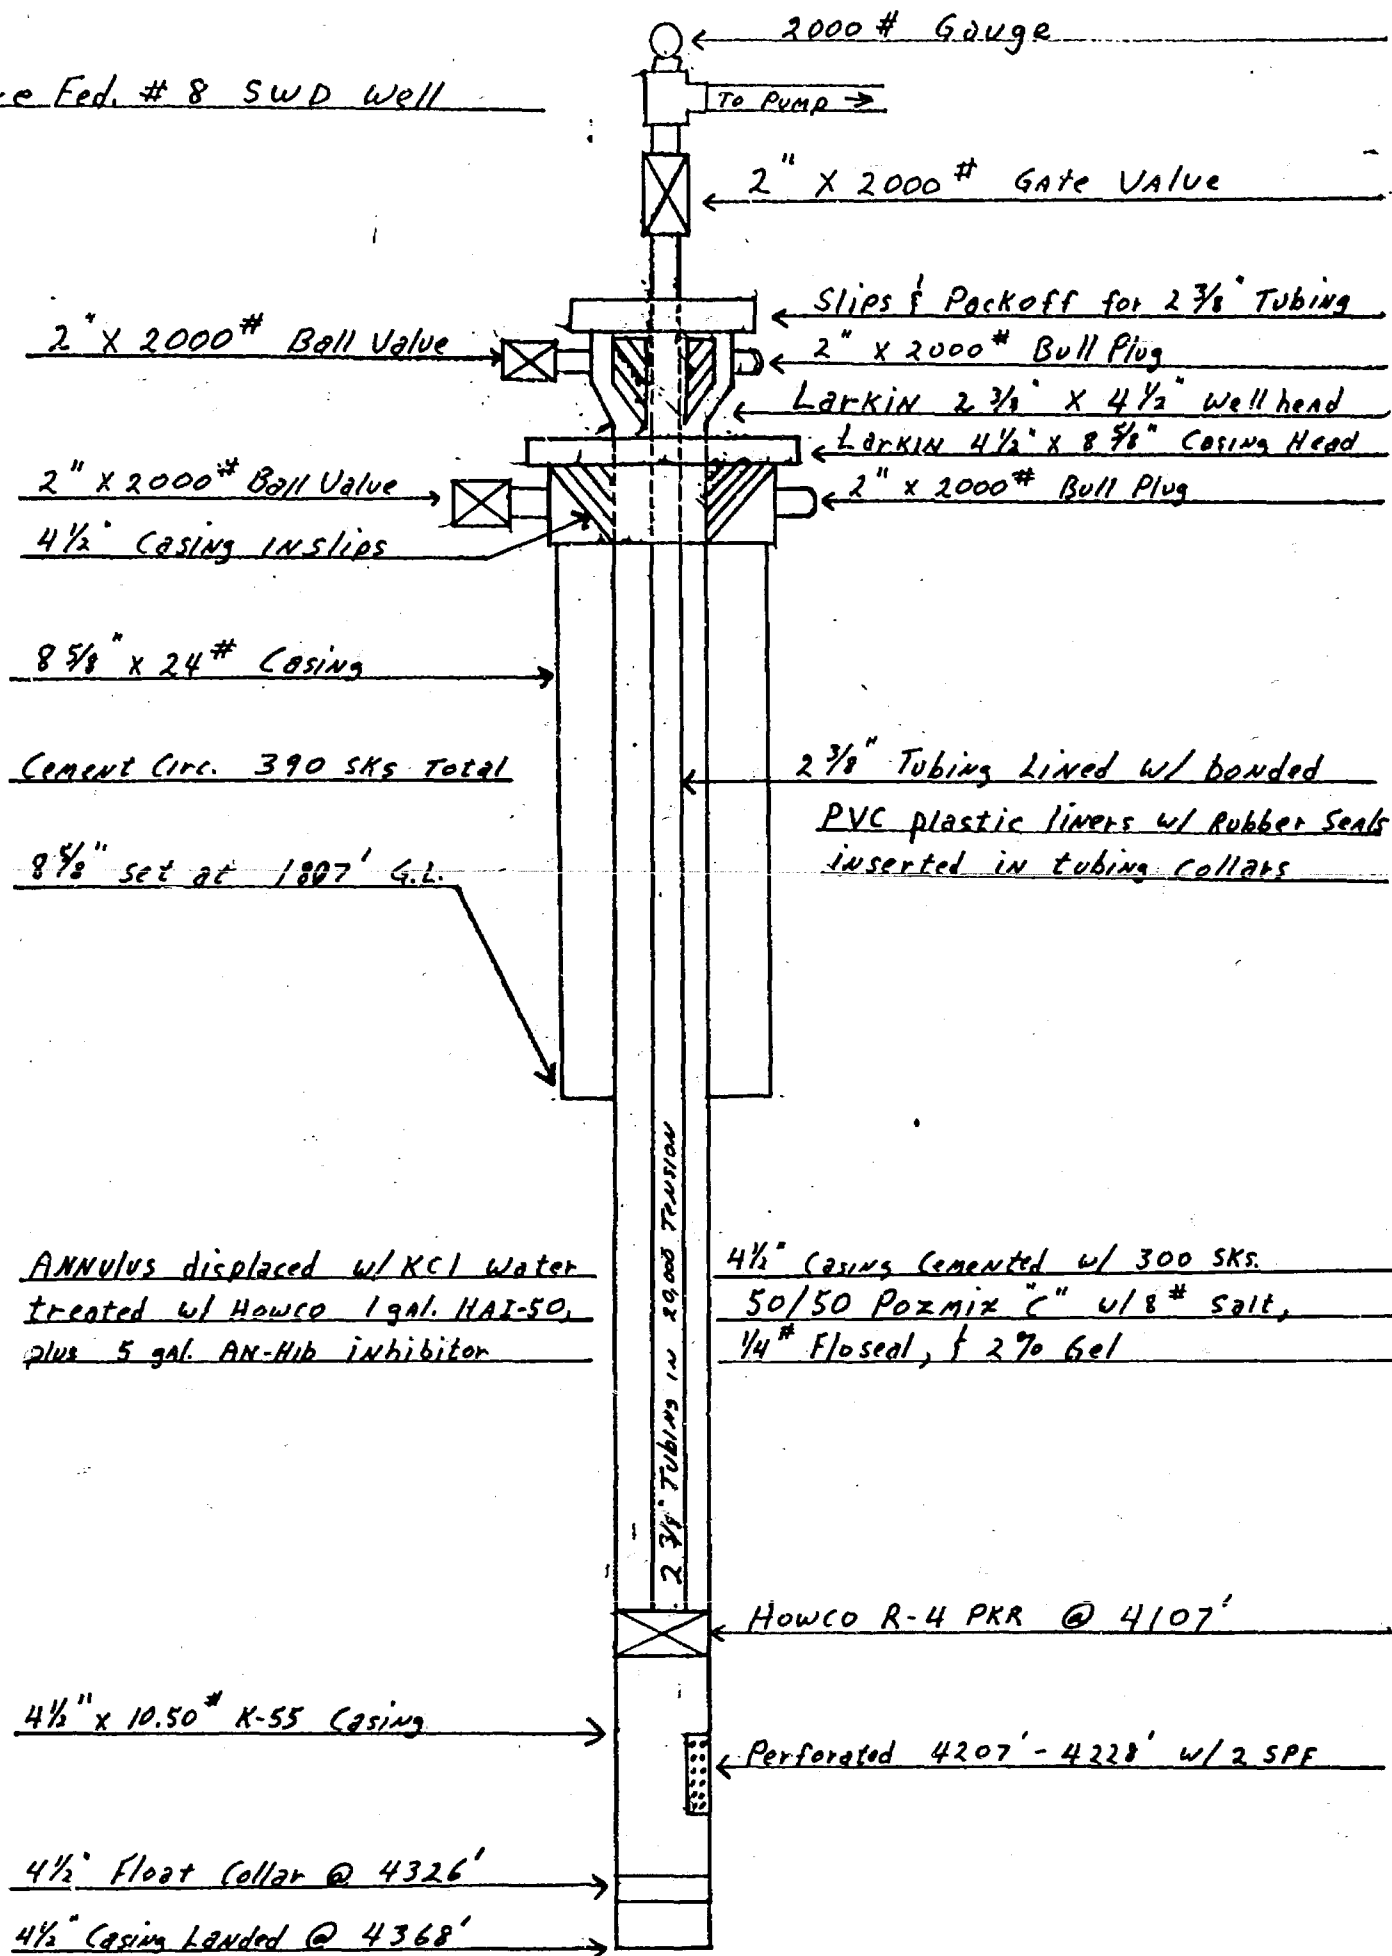 2000 # Gauge
e Fed. # 8 SWD Well
To Pump →
2" X 2000 # GAte VAlve
Slips & Packoff for 2 3/8" Tubing
2" X 2000 # Ball Valve
2" X 2000 # Bull Plug
Larkin 2 3/8" X 4 1/2" wellhead
Larkin 4 1/2" x 8 5/8" Casing Head
2" X 2000 # Ball Valve
2" x 2000 # Bull Plug
4 1/2" Casing IN slips
8 5/8" x 24 # Casing
Cement Circ. 390 SKs Total
2 3/8" Tubing Lined w/ bonded
PVC plastic liners w/ Rubber Seals
inserted in tubing Collars
8 5/8" set at 1807' G.L.
2 3/8" TubiNg IN 20,000 TENSION
ANNulus displaced w/ KCl water
treated w/ Howco 1 gal. HAI-50,
plus 5 gal. AN-Hib inhibitor
4 1/2" Casing Cemented w/ 300 SKs.
50/50 Pozmix "C" w/ 8 # Salt,
1/4 # Floseal, & 2% Gel
Howco R-4 PKR @ 4107'
4 1/2" x 10.50 # K-55 Casing
Perforated 4207' - 4228' w/ 2 SPF
4 1/2" Float Collar @ 4326'
4 1/2" Casing Landed @ 4368'